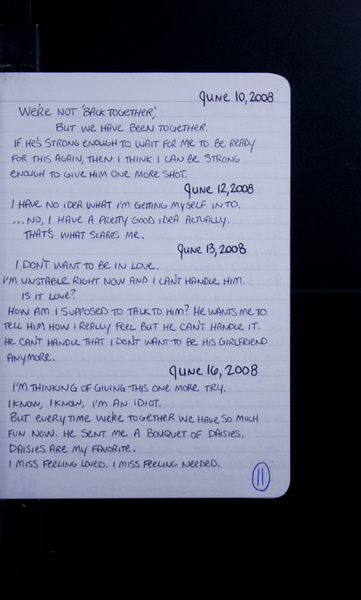 June 10, 2008
WE'RE NOT 'BACK TOGETHER,'
BUT WE HAVE BEEN TOGETHER.
IF HE'S STRONG ENOUGH TO WAIT FOR ME TO BE READY
FOR THIS AGAIN, THEN I THINK I CAN BE STRONG
ENOUGH TO GIVE HIM ONE MORE SHOT.
June 12, 2008
I HAVE NO IDEA WHAT I'M GETTING MYSELF INTO.
...NO, I HAVE A PRETTY GOOD IDEA ACTUALLY.
THAT'S WHAT SCARES ME.
June 13, 2008
I DON'T WANT TO BE IN LOVE.
I'M UNSTABLE RIGHT NOW AND I CAN'T HANDLE HIM.
IS IT LOVE?
HOW AM I SUPPOSED TO TALK TO HIM? HE WANTS ME TO
TELL HIM HOW I REALLY FEEL BUT HE CAN'T HANDLE IT.
HE CAN'T HANDLE THAT I DON'T WANT TO BE HIS GIRLFRIEND
ANYMORE.
June 16, 2008
I'M THINKING OF GIVING THIS ONE MORE TRY.
I KNOW, I KNOW, I'M AN IDIOT.
BUT EVERY TIME WE'RE TOGETHER WE HAVE SO MUCH
FUN NOW. HE SENT ME A BOUQUET OF DAISIES.
DAISIES ARE MY FAVORITE.
I MISS FEELING LOVED. I MISS FEELING NEEDED.
11